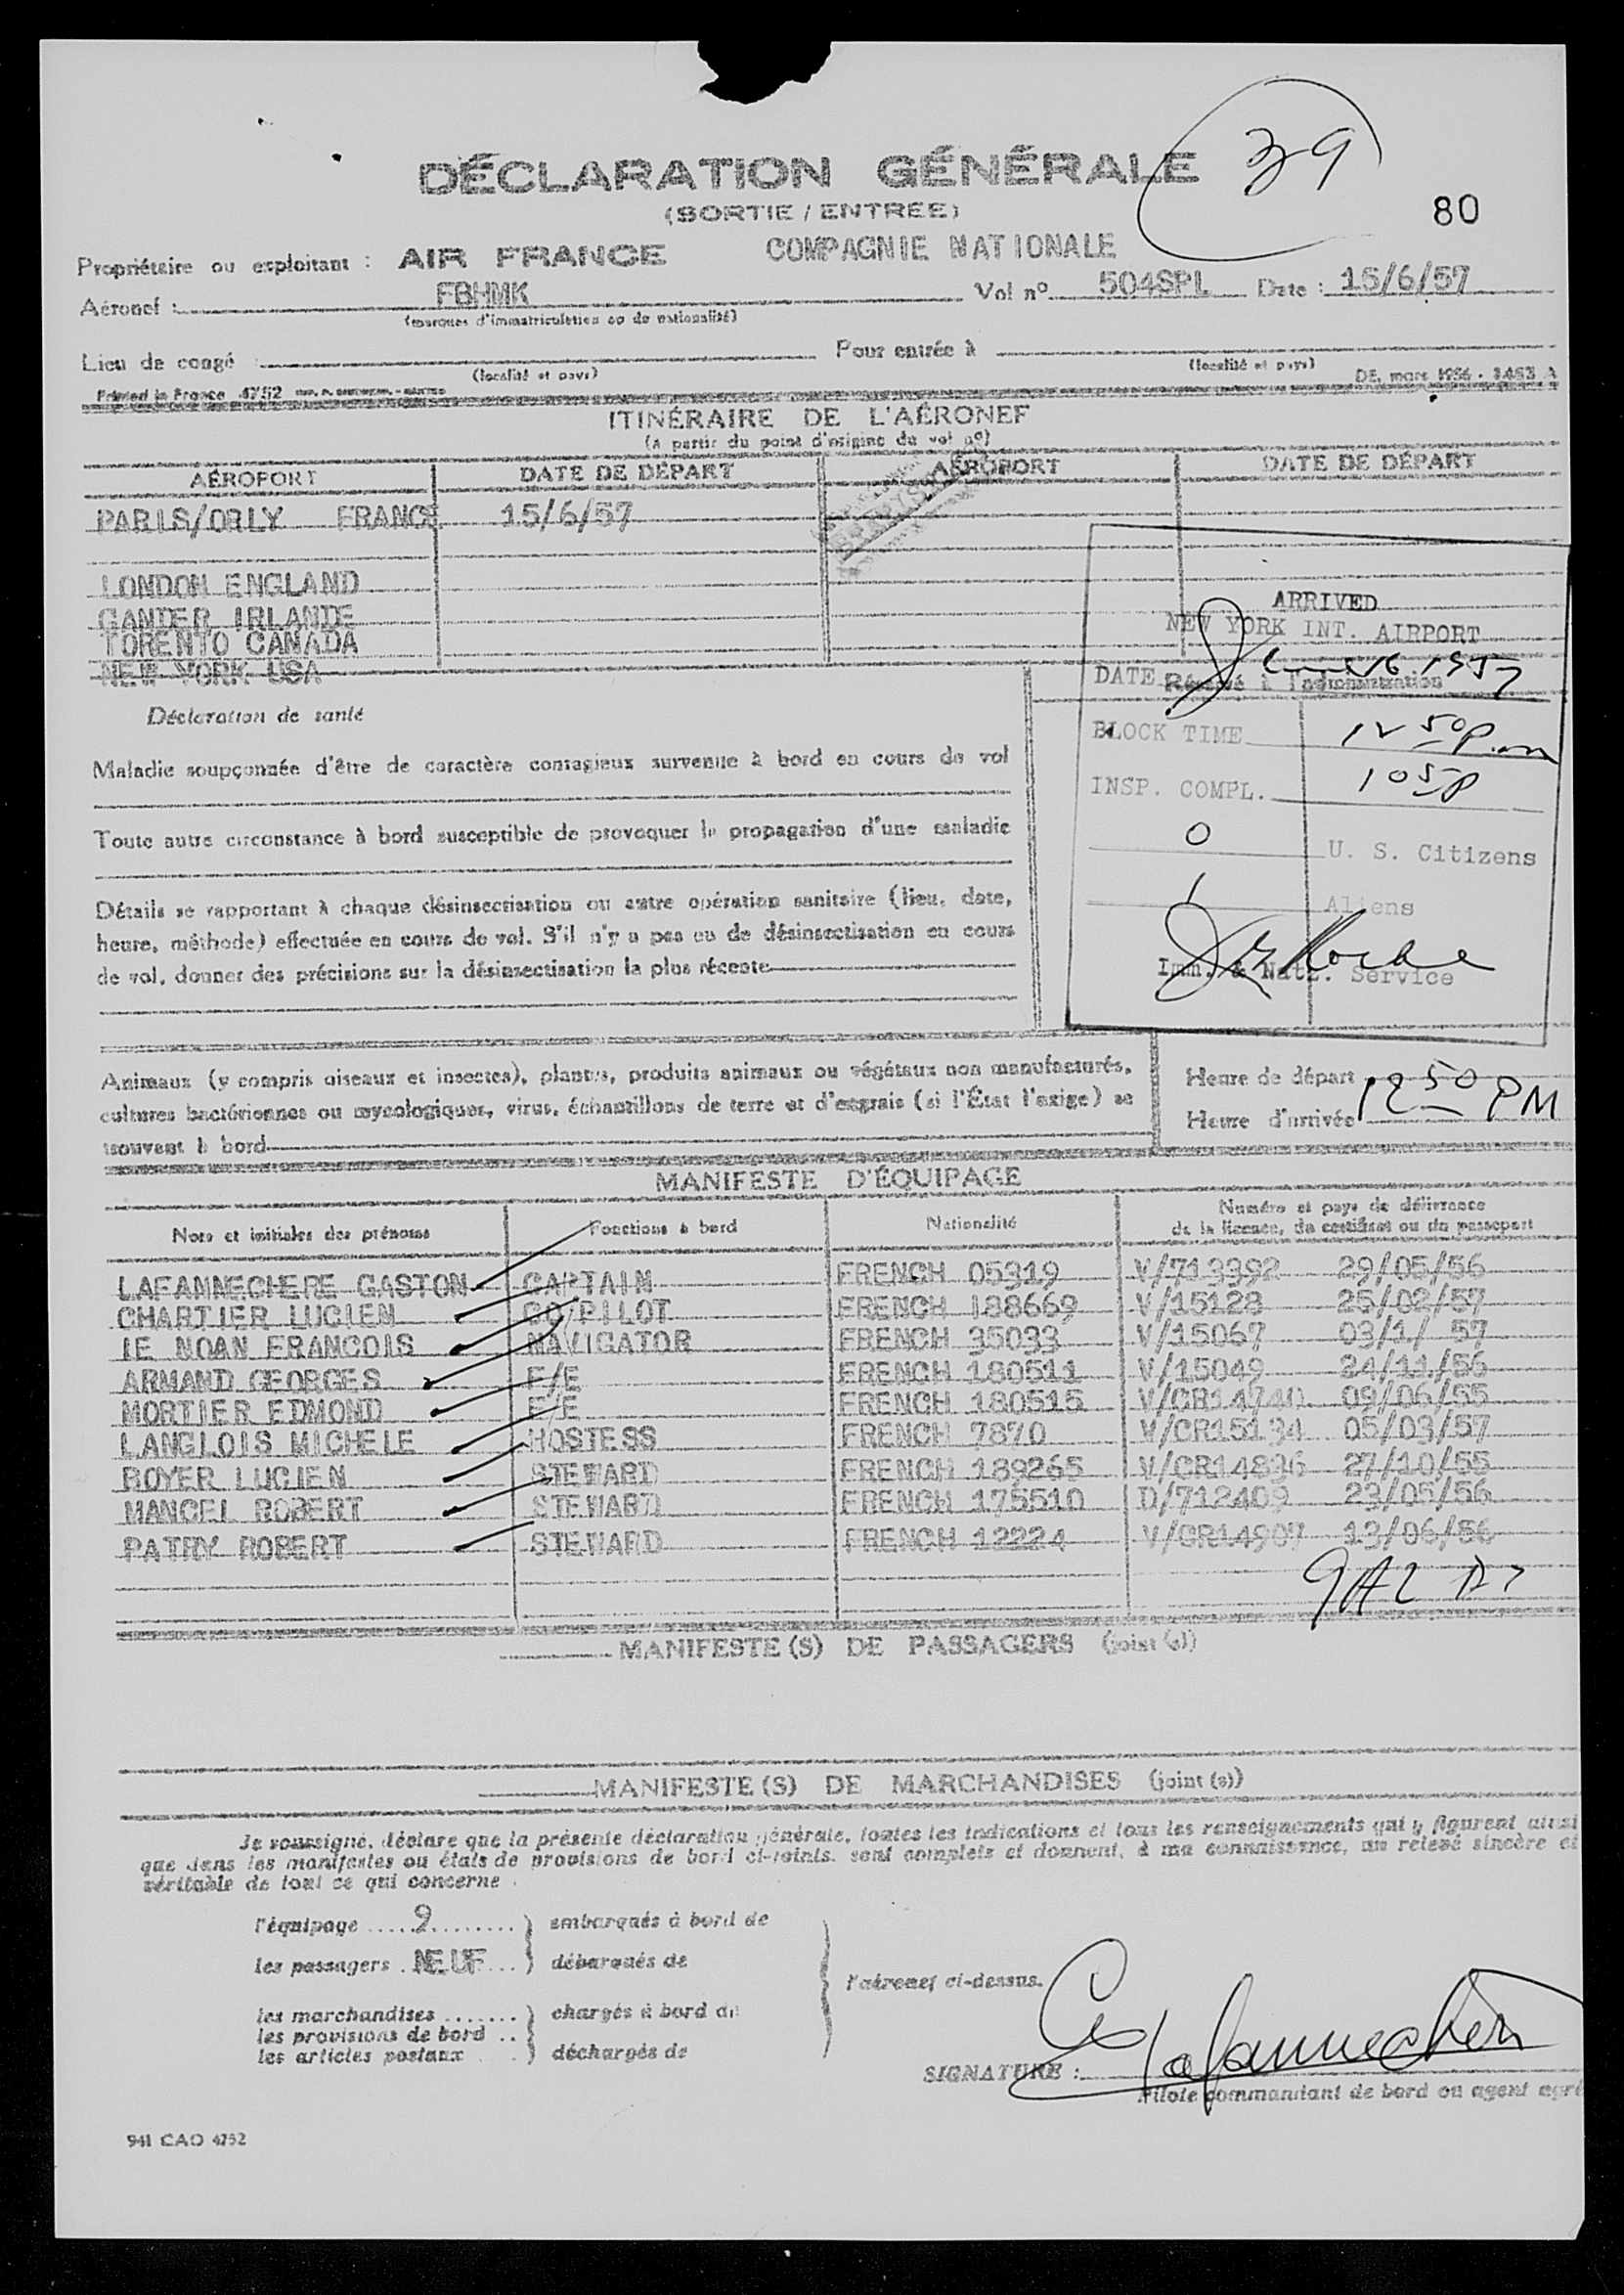 39
DÉCLARATION GÉNÉRALE
(SORTIE / ENTRÉE)
80
Propriétaire ou exploitant : AIR FRANCE COMPAGNIE NATIONALE
Aéronef : FBHMK Vol nº 504SPL Date : 15/6/57
(marques d'immatriculation ou de nationalité)
Lieu de congé Pour entrée à
(localité et pays) (localité et pays)
Printed in France 4752 DE. mars 1956 - 3453 A
ITINÉRAIRE DE L'AÉRONEF
(à partir du point d'origine du vol nº)
AÉROPORT DATE DE DÉPART AÉROPORT DATE DE DÉPART
PARIS/ORLY FRANCE 15/6/57
LONDON ENGLAND
GANDER IRLANDE
TORENTO CANADA
NEW YORK USA
ARRIVED
NEW YORK INT. AIRPORT
DATE June 16 1957
Réservé à l'administration
BLOCK TIME 12 50 p.m
INSP. COMPL. 105p
0 U. S. Citizens
Aliens
Imm. & Natz. Service
Déclaration de santé
Maladie soupçonnée d'être de caractère contagieux survenue à bord en cours de vol
Toute autre circonstance à bord susceptible de provoquer la propagation d'une maladie
Détails se rapportant à chaque désinsectisation ou autre opération sanitaire (lieu, date,
heure, méthode) effectuée en cours de vol. S'il n'y a pas eu de désinsectisation en cours
de vol, donner des précisions sur la désinsectisation la plus récente
Animaux (y compris oiseaux et insectes), plantes, produits animaux ou végétaux non manufacturés,
cultures bactériennes ou mycologiques, virus, échantillons de terre et d'engrais (si l'État l'exige) se
trouvent à bord
Heure de départ
Heure d'arrivée 12 50 PM
MANIFESTE D'ÉQUIPAGE
Nom et initiales des prénoms Fonctions à bord Nationalité Numéro et pays de délivrance
de la licence, du certificat ou du passeport
LAFANNECHERE GASTON CAPTAIN FRENCH 05319 V/713392 29/05/56
CHARTIER LUCIEN CO/PILOT FRENCH 188669 V/15128 25/02/57
LE NOAN FRANCOIS NAVIGATOR FRENCH 35033 V/15067 03/1/ 57
ARMAND GEORGES F/E FRENCH 180511 V/15049 24/11/56
MORTIER EDMOND F/E FRENCH 180515 V/CR14740 09/06/55
LANGLOIS MICHELE HOSTESS FRENCH 7870 V/CR15134 05/03/57
ROYER LUCIEN STEWARD FRENCH 189265 V/CR14836 27/10/55
MANCEL ROBERT STEWARD FRENCH 175510 D/712409 23/05/56
PATRY ROBERT STEWARD FRENCH 12224 V/CR14907 13/06/56
MANIFESTE (S) DE PASSAGERS (joint (s))
MANIFESTE (S) DE MARCHANDISES (joint (s))
Je soussigné, déclare que la présente déclaration générale, toutes les indications et tous les renseignements qui y figurent ainsi
que dans les manifestes ou états de provisions de bord ci-joints, sont complets et donnent, à ma connaissance, un relevé sincère et
véritable de tout ce qui concerne :
l'équipage 9 embarqués à bord de
les passagers NEUF débarqués de
l'aéronef ci-dessus.
les marchandises chargés à bord de
les provisions de bord
les articles postaux déchargés de
SIGNATURE : Lafannechère
Pilote commandant de bord ou agent agré
941 CAO 4752